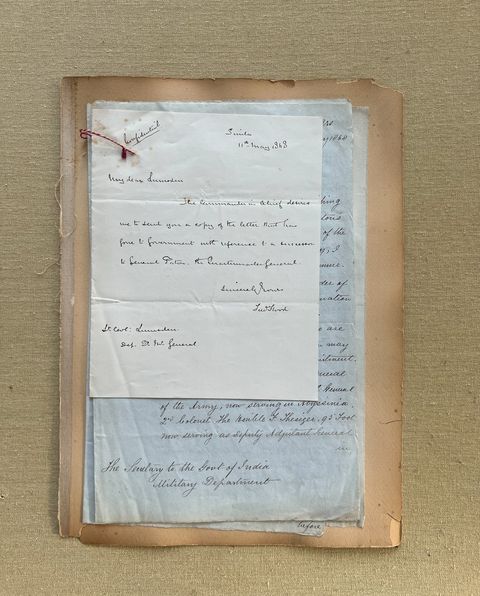 Confidential
Simla
11th May, 1868
My dear Lumsden
The Commander in Chief desires
me to send you a copy of the letter that has
gone to Government with reference to a successor
to General Paton. the Quartermaster General
Sincerely Yours
Lt Col: Lumsden
Dep. Qr Mr General
1868
of the
of
are
may
General
of the Army, now serving in Abyssinia
2nd Colonel The Honble F. Thesiger, 95 Foot
now serving as Deputy Adjutant General
in
The Secretary to the Govt of India
Military Department
before